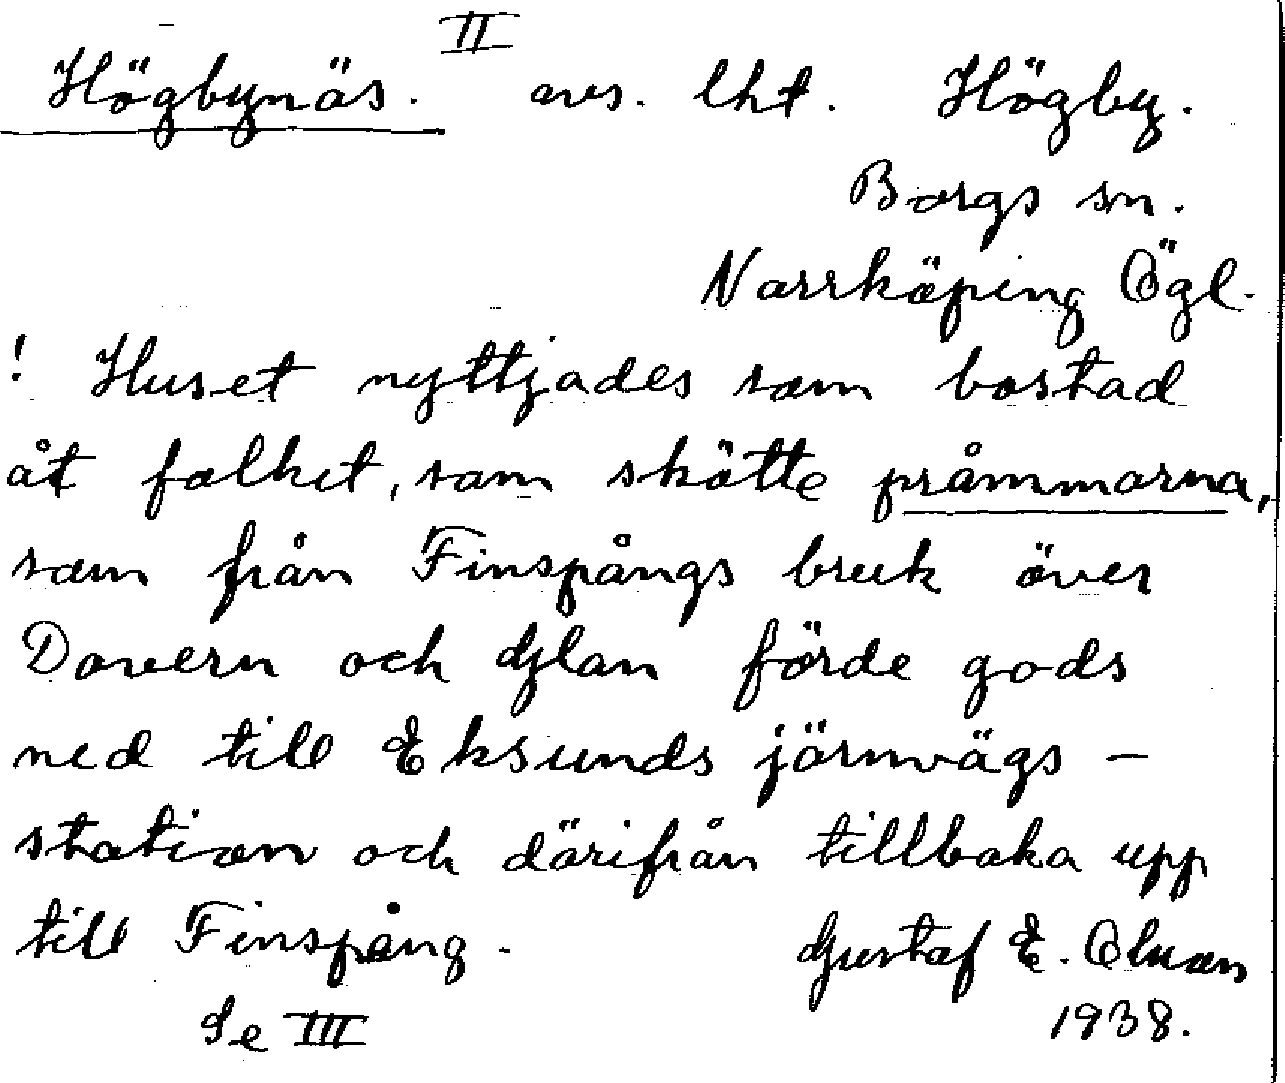 II
Högbynäs. avs. lht. Högby.
Borgs sn.
Norrköping Ögl.
! Huset nyttjades som bostad
åt folket, som skötte pråmmarna,
som från Finspångs bruk över
Dovern och Glan förde gods
ned till Eksunds järnvägs-
station och därifrån tillbaka upp
till Finspång.
Gustaf E. Olsson
Se III
1938.